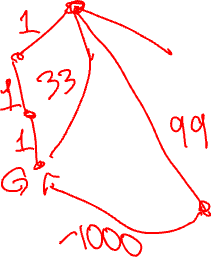 1
33
1
99
1
G
~1000